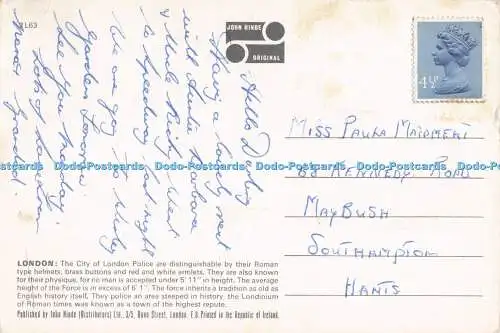 2L63
JOHN HINDE
ORIGINAL
4½P
Hello Darling
Having a lovely rest
with Auntie Barbara
& Uncle Rich, went
to Speedway last night
We are going to Wisley
Gardens Love
See you Monday
Lots of love from
MISS PAULA MAIDMENT
68 KENNEDY ROAD
MAYBUSH
SOUTHAMPTON
HANTS
LONDON: The City of London Police are distinguishable by their Roman
type helmets, brass buttons and red and white armlets. They are also known
for their physique, for no man is accepted under 5' 11" in height. The average
height of the Force is in excess of 6' 1". The force inherits a tradition as old as
English history itself, They police an area steeped in history, the Londinium
of Roman times was known as a town of the highest repute.
Published by John Hinde (Distributors) Ltd., 3/5, Dunn Street, London. E.8. Printed in the Republic of Ireland.
Dodo-Postcards Dodo-Postcards Dodo-Postcards Dodo-Postcards Dodo-Postcards Dodo-Postcards